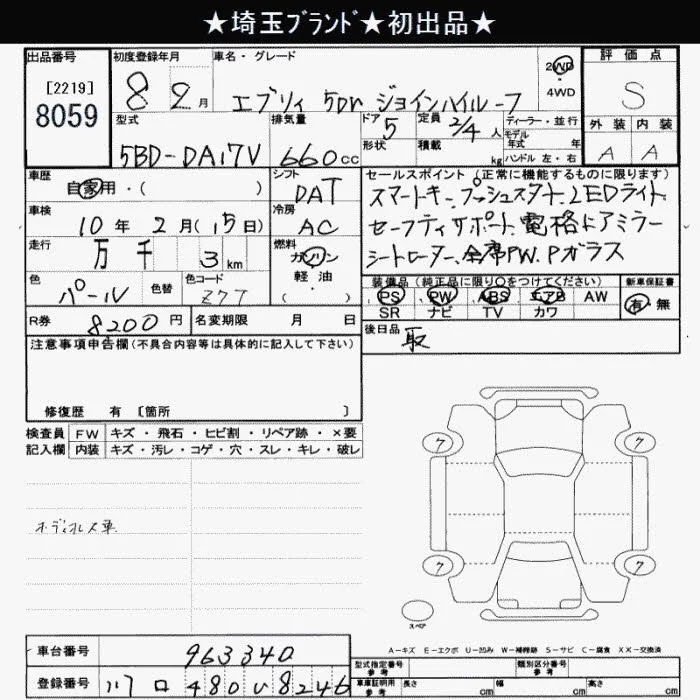 ★埼玉ブランド★初出品★
出品番号 初度登録年月 車名・グレード 評価点
[2219] 8 2月 エブリィ 5DR ジョインハイルーフ 2WD・4WD S
8059
型式 排気量 ドア 定員 ディーラー・並行 外装 内装
5BD-DA17V 660cc 5 2/4人 モデル年式 年式 A A
形状 積載 kg ハンドル 左・右
車歴 シフト セールスポイント(正常に機能するものに限ります)
自家用・( ) DAT スマートキー.プッシュスタート.LEDライト
車検 冷房 セーフティサポート.電格ドアミラー
10年2月(15日) AC シートヒーター.全席PW.Pガラス
走行 燃料
万 千 3km ガソリン
軽・油
( )
色 色替 色コード 装備品(純正品に限り○をつけてください) 新車保証書
パール Z7T PS PW ABS エアB AW 有 無
SR ナビ TV カワ
R券 8200円 名変期限 月 日 後日品 取
注意事項申告欄(不具合内容等は具体的に記入して下さい)
修復歴 有 [箇所 ]
検査員 FW キズ・飛石・ヒビ割・リペア跡・×要
記入欄 内装 キズ・汚レ・コゲ・穴・スレ・キレ・破レ
ボディオレス車
ア ア
ア ア
スペア
A-キズ E-エクボ U-凹み W-補修跡 S-サビ C-腐食 XX-交換済
車台番号 963340
型式指定番号 参考 類別区分番号 参考
登録番号 川口 480 い 8246
車車証明用 参考 長さ cm 幅 cm 高さ cm